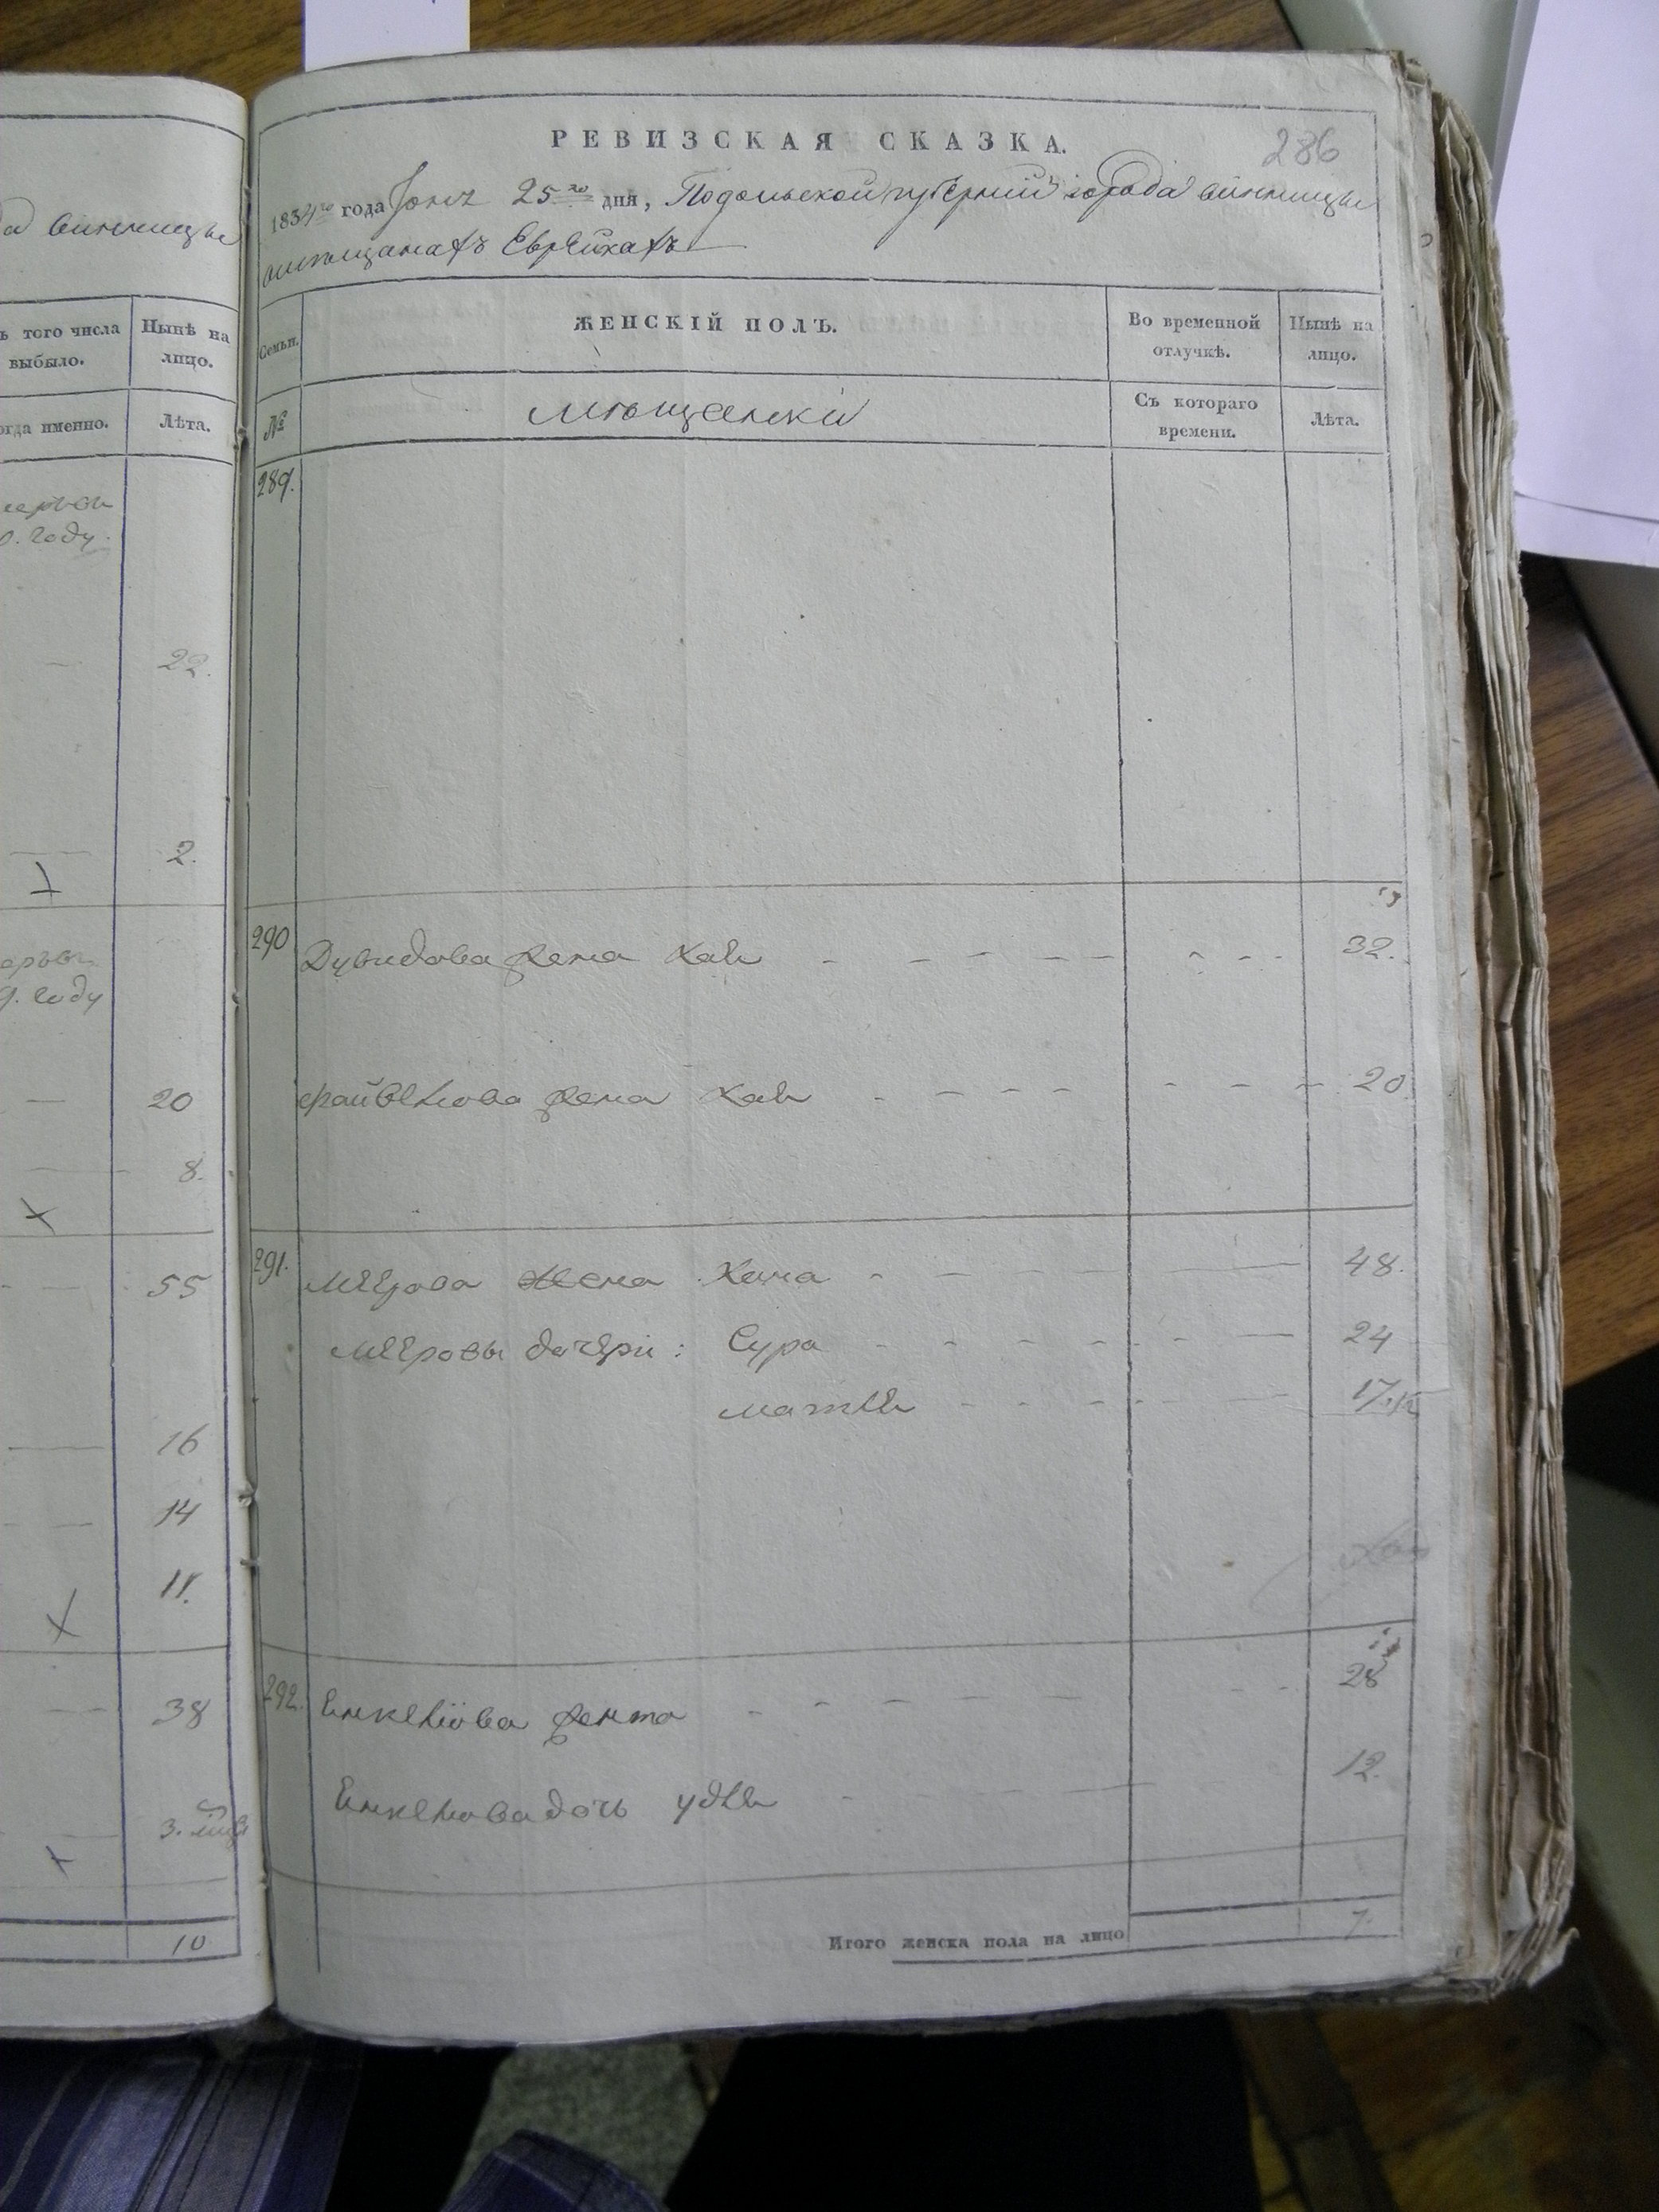 286
РЕВИЗСКАЯ СКАЗКА.
1834го года 25го дня, Подольской губерній города винницы
мѣщанахъ Еврейкахъ
винницы
ъ того числа выбыло.
Нынѣ на лицо.
огда именно.
Лѣта.
году.
22.
2.
9. году
20
8.
55
16
14
11.
38
3.
10
Семьи.
ЖЕНСКІЙ ПОЛЪ.
Во временной отлучкѣ.
Нынѣ на лицо.
№
мѣщанки
Съ котораго времени.
Лѣта.
289.
290 Дувидова жена Хая 32.
Файвелiова жена Хая 20.
291. меерова жена Хана 48.
мееровы дочери: Сура 24
матля 17.
292. Енкелiова жента 28
Енкелiова дочь удля 12.
Итого женска пола на лицо 7.